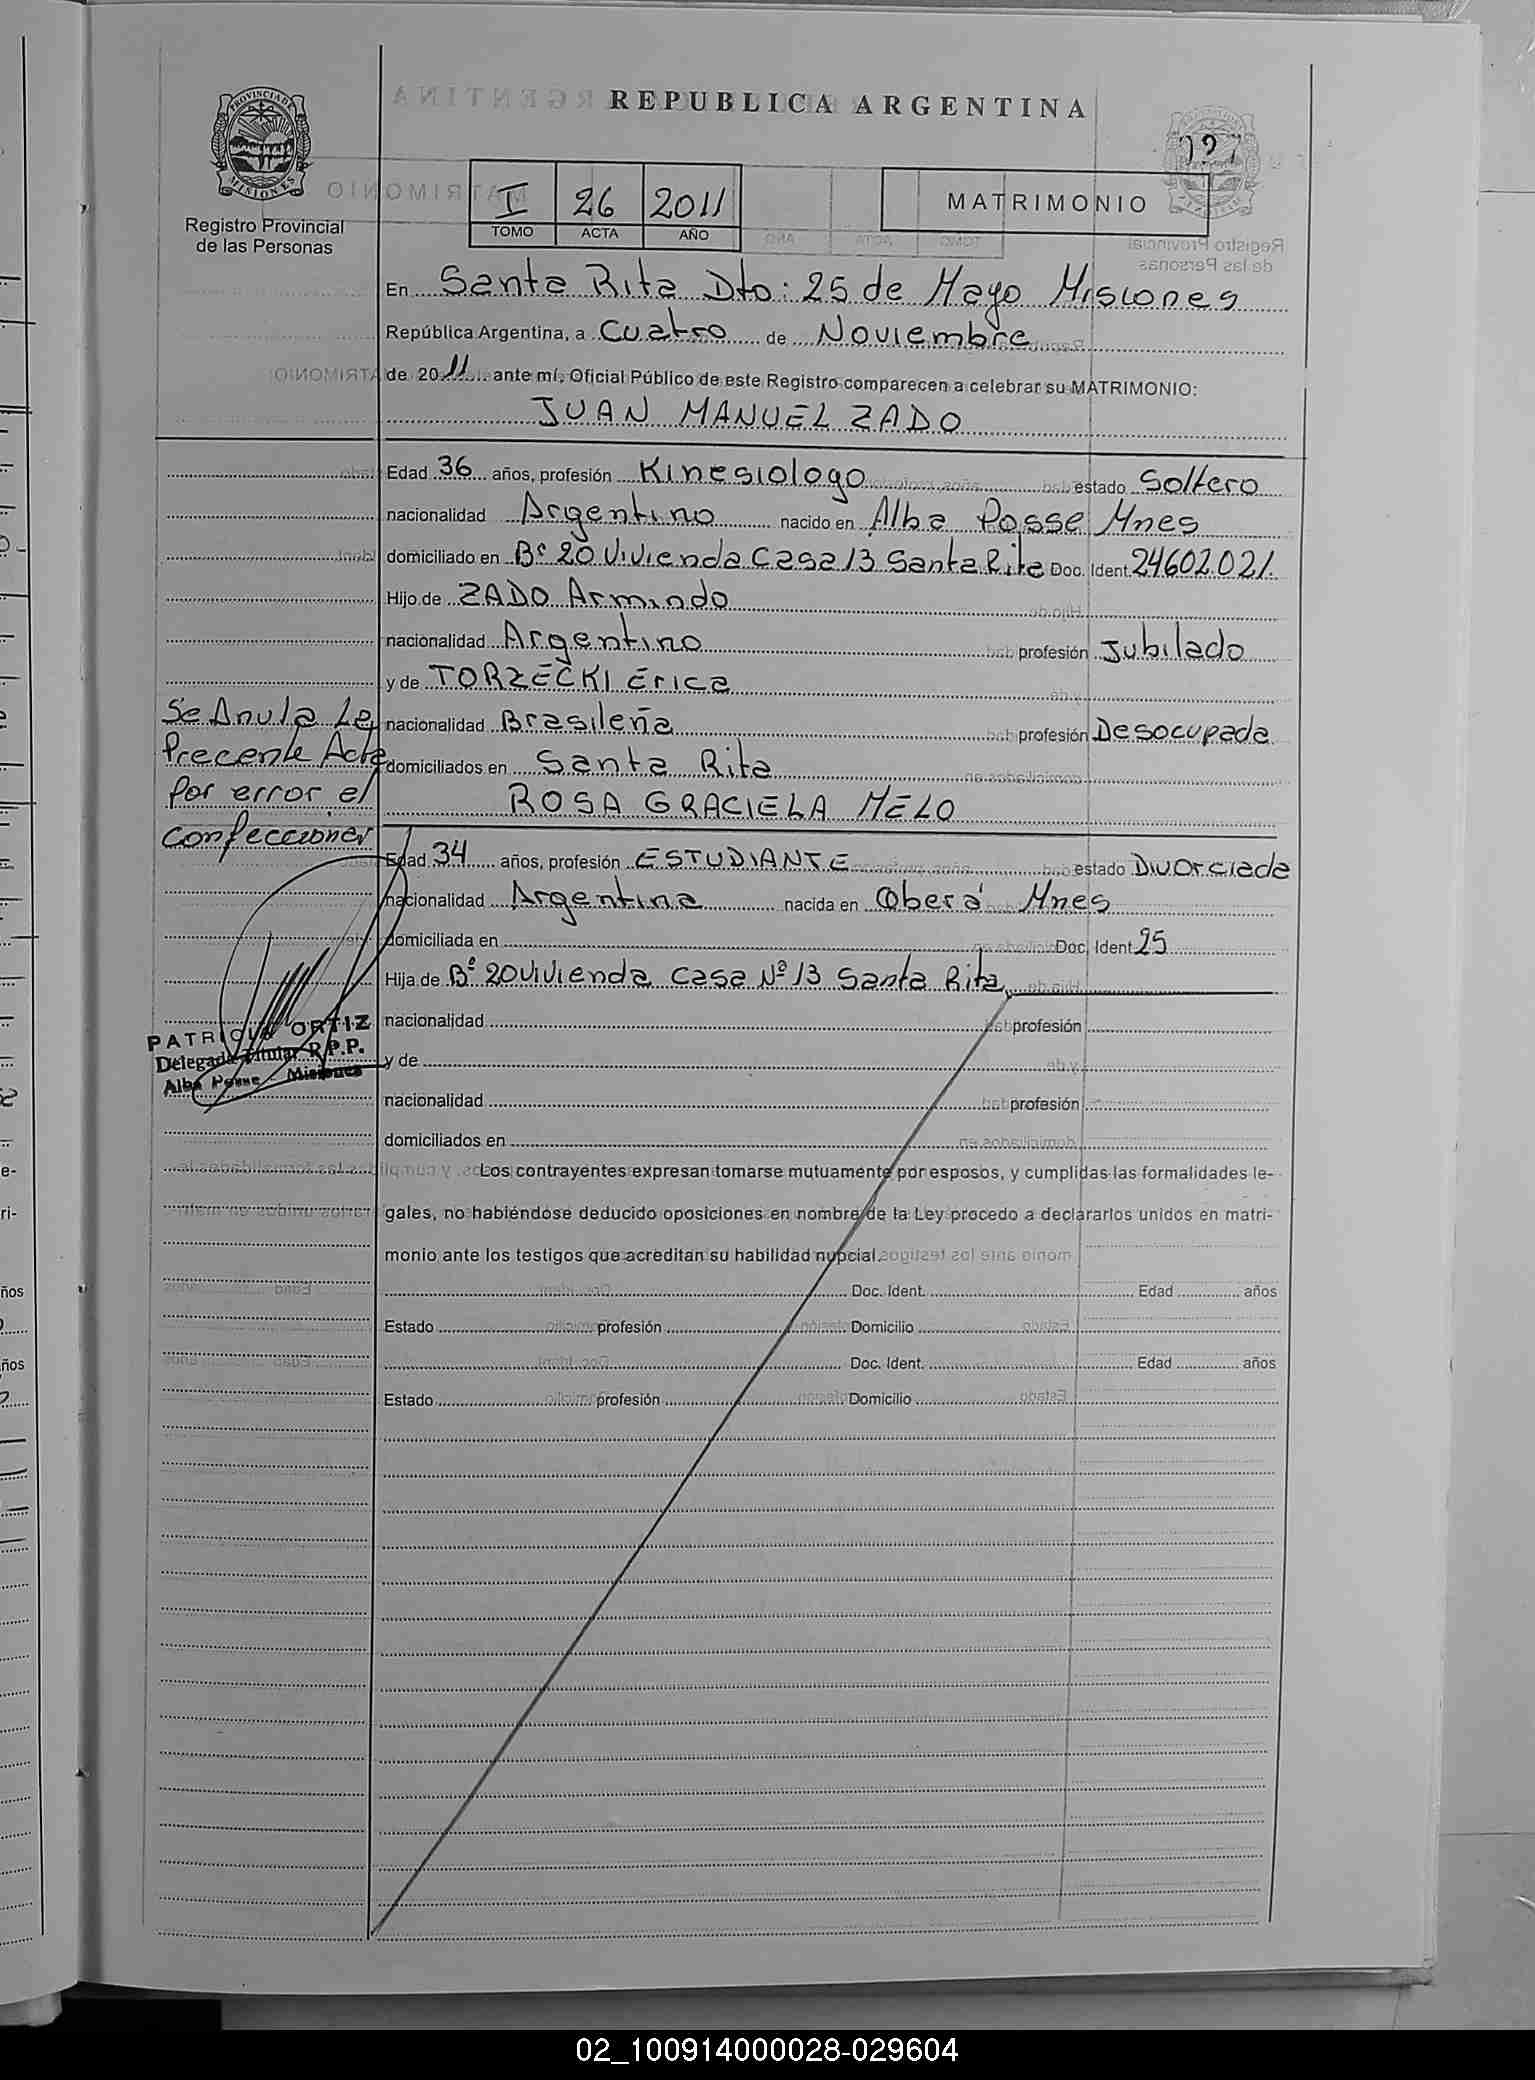 REPUBLICA ARGENTINA
PROVINCIA DE MISIONES
Registro Provincial
de las Personas
I 26 2011
TOMO ACTA AÑO
MATRIMONIO
En Santa Rita Dto: 25 de Mayo Misiones
República Argentina, a Cuatro de Noviembre
de 2011 ante mí, Oficial Público de este Registro comparecen a celebrar su MATRIMONIO:
JUAN MANUEL ZADO
Edad 36 años, profesión Kinesiologo estado Soltero
nacionalidad Argentino nacido en Alba Posse Mnes
domiciliado en Bº 20 Vivienda Casa 13 Santa Rita Doc. Ident. 24602.021.
Hijo de ZADO Armindo
nacionalidad Argentino profesión Jubilado
y de TORZECKI Erica
nacionalidad Brasileña profesión Desocupada
domiciliados en Santa Rita
ROSA GRACIELA MELO
Edad 34 años, profesión ESTUDIANTE estado Divorciada
nacionalidad Argentina nacida en Oberá Mnes
domiciliada en Doc. Ident 25
Hija de Bº 20 Vivienda Casa Nº 13 Santa Rita
nacionalidad profesión
y de
nacionalidad profesión
domiciliados en
Los contrayentes expresan tomarse mutuamente por esposos, y cumplidas las formalidades le-
gales, no habiéndose deducido oposiciones en nombre de la Ley procedo a declararlos unidos en matri-
monio ante los testigos que acreditan su habilidad nupcial.
Doc. Ident. Edad años
Estado profesión Domicilio
Doc. Ident. Edad años
Estado profesión Domicilio
Se Anula La
Precente Acta
Por error el
confeccionar
PATRICIA ORTIZ
Delegada Titular R.P.P.
Alba Posse - Misiones
02_100914000028-029604